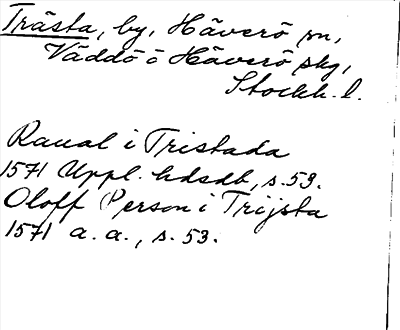 Trästa, by, Häverö sn,
Väddö o Häverö skg,
Stockh. l.
Raual i Tristada
1571 Uppl. hdsdb, s. 59.
Oloff Person i Trijsta
1571 a. a., s. 53.